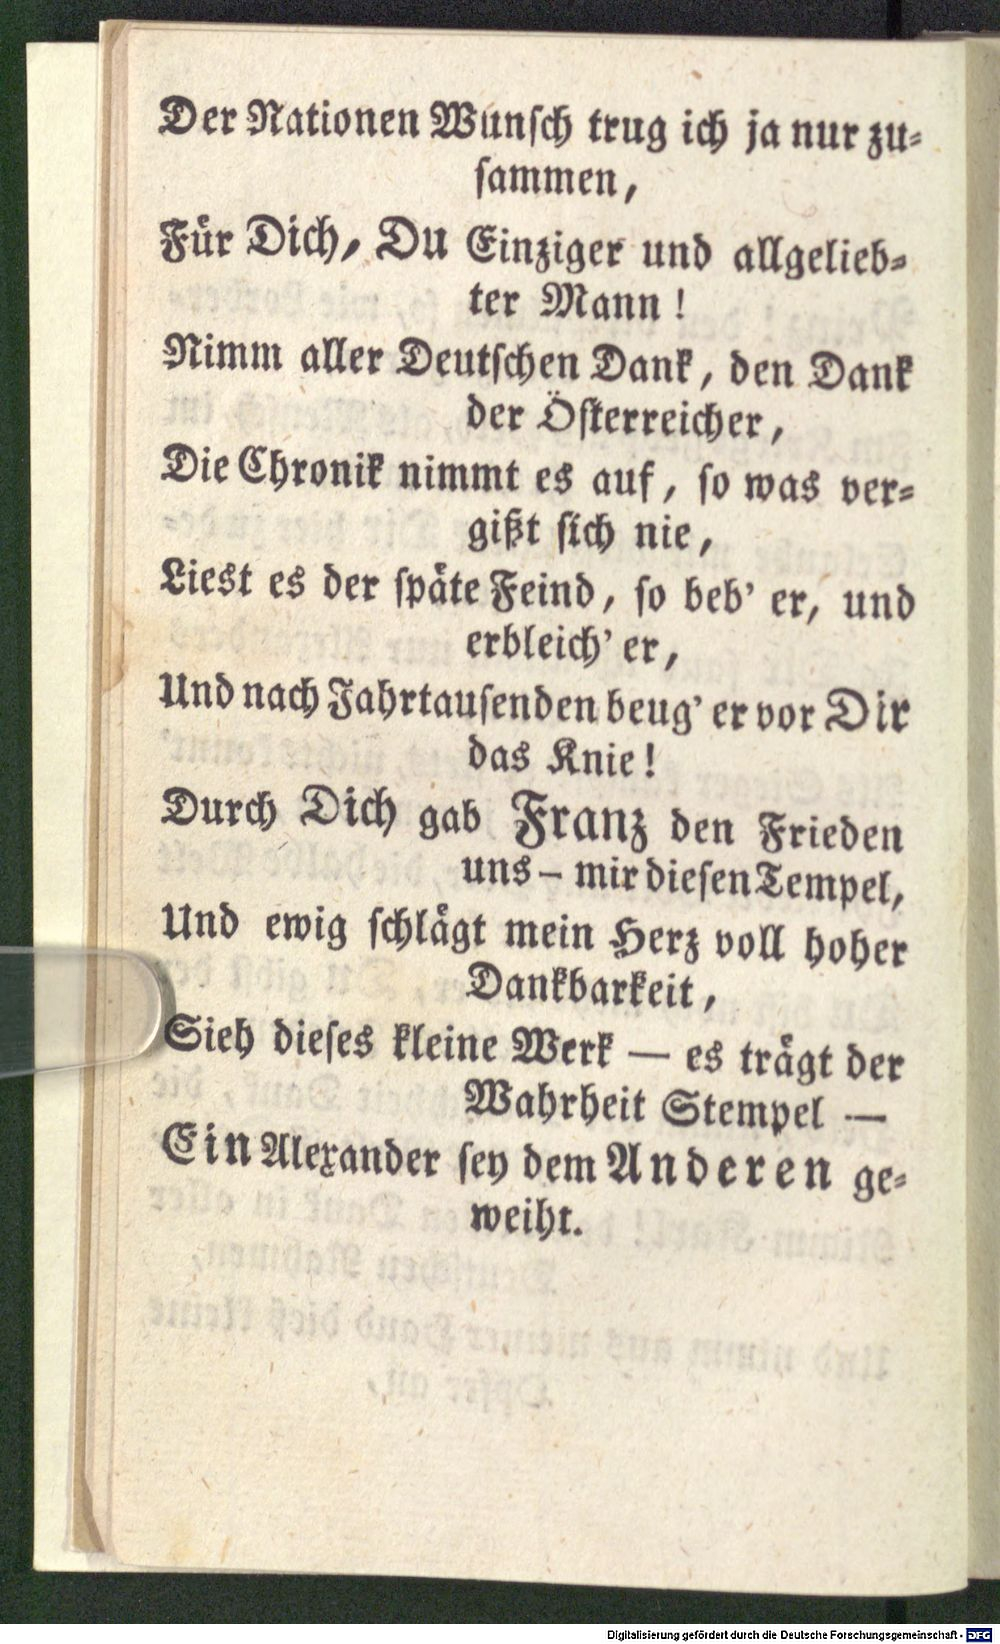 Der Nationen Wunſch trug ich ja nur zu⸗
ſammen,
Für Dich, Du Einziger und allgelieb⸗
ter Mann!
Nimm aller Deutſchen Dank, den Dank
der Öſterreicher,
Die Chronik nimmt es auf, ſo was ver⸗
gißt ſich nie,
Liest es der ſpäte Feind, ſo beb' er, und
erbleich' er,
Und nach Jahrtauſenden beug' er vor Dir
das Knie!
Durch Dich gab Franz den Frieden
uns — mir dieſen Tempel,
Und ewig ſchlägt mein Herz voll hoher
Dankbarkeit,
Sieh dieſes kleine Werk — es trägt der
Wahrheit Stempel —
Ein Alexander ſey dem Anderen ge⸗
weiht.
Digitalisierung gefördert durch die Deutsche Forschungsgemeinschaft - DFG